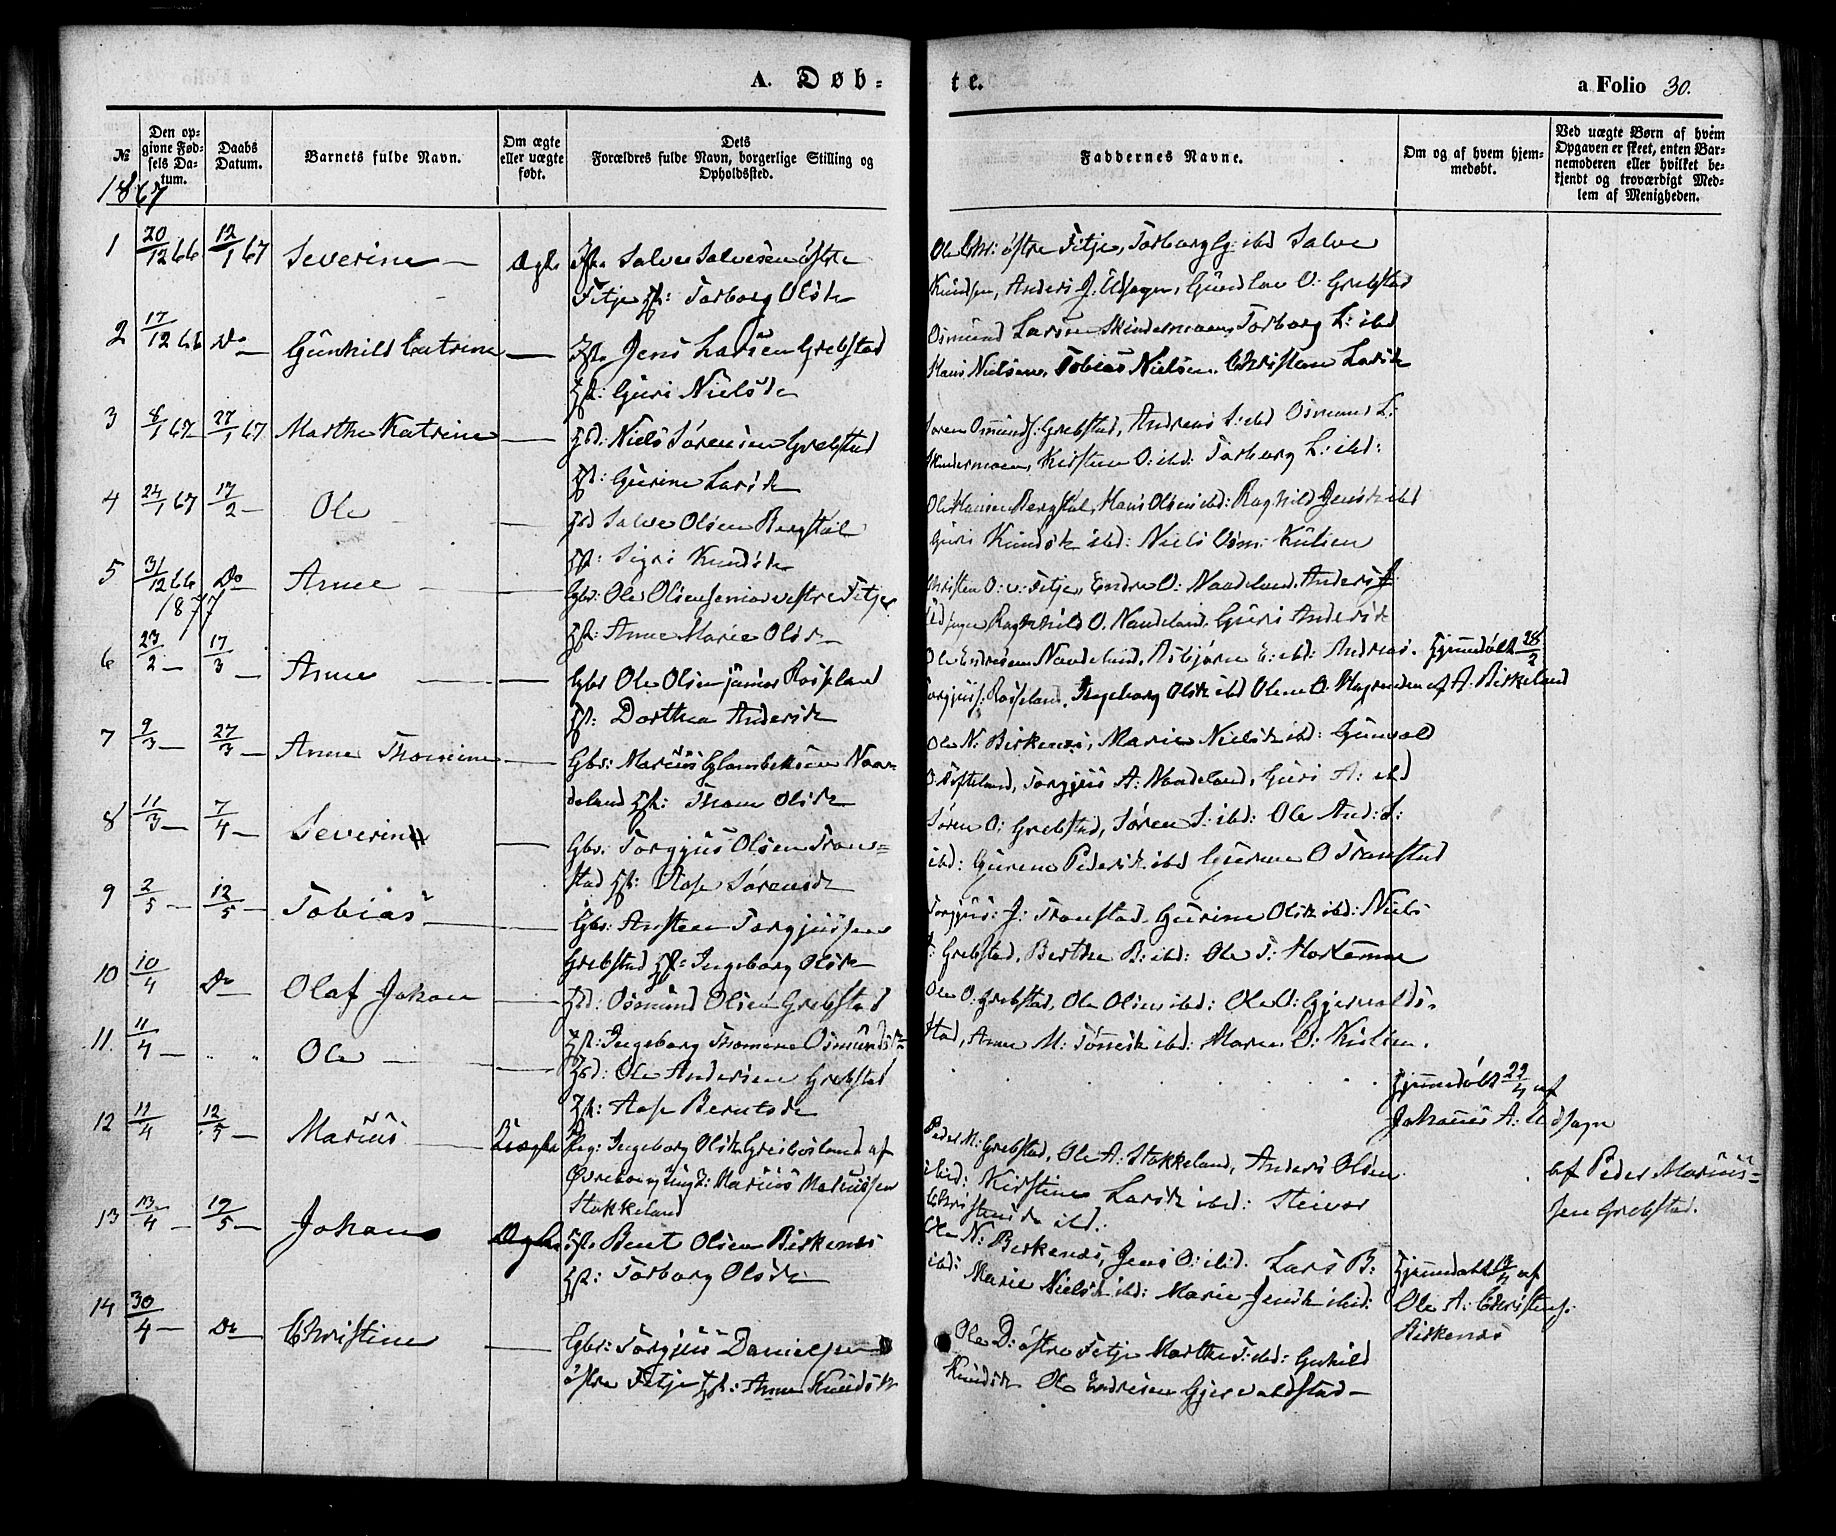 A. Døb=
te.
a Folio 30.
№
Den op=
givne Fød=
sels Da=
tum.
Daabs
Datum.
Barnets fulde Navn.
Om ægte
eller uægte
født.
Dets
Forældres fulde Navn, borgerlige Stilling og
Opholdssted.
Faddernes Navne.
Om og af hvem hjem=
medøbt.
Ved uægte Børn af hvem
Opgaven er skeet, enten Bar=
nemoderen eller hvilket be=
kjendt og troværdigt Med=
lem af Menigheden.
1867
1 20/12 66 12/1 67 Severine — Ægte Salve Salvesen østre
Fitje Torborg Olsdr
Ole Chr: østre Fitje, Torborg G: ibd Salve
Knudsen, Anders J: Udsagn, O: Grebstad
2 17/12 66 Do — Gunhild Catrine — Jens Larsen Grebstad
Guri Nielsdr
Osmund Larsen Skindermoen, Torborg L: ibd
Hans Nielsen, Tobias Nielsen, Christian Larsdr
3 8/1 67 27/1 67 Marthe Katrine — Niels Sørensen Grebstad
Gurine Larsdr
Søren Osmunds: Grebstad, Andreas S: ibd Osmund L:
Skindermoen, Kirsten O: ibd: Torborg L: ibd:
4 24/1 67 17/2 Ole — Salve Olsen Bergstøl
Sigri Knudsdr
Ole Hansen Bergstøl, Hans Olsen ibd: Raghild Jensdr ibd
Guri Knudsdr ibd: Niels Osm: Kulien
5 31/12 66 Do — Anne — Gbr: Ole Olsen senior vestre Fitje
Anne Marie Olsdr
Christen O: v: Fitje, Endre O: Naadeland, Anders J:
Udsagn Raghild O. Naadeland, Guri Andersdr
1877
6 23/2 — 17/3 — Anne — Gbr Ole Olsen junior Rosseland
Dorthea Andersdr
Ole Endresen Naadeland, Asbjørn E: ibd: Andreas
Torgjuss: Rosseland, Ingeborg Olsdr ibd Olene O:
Hjemdøbt 28/2
af A: Birkeland
7 9/3 — 27/3 — Anne Thomine — Gbr: Marius Glambeksen Naa=
deland Thom Olsdr
Ole N: Birkenes, Marie Nielsdr ibd: Gunvald
O: Torgjus A: Naadeland, Guri A: ibd
8 11/3 — 7/4 — Severine — Gbr: Torgjus Olsen Tron=
stad Aase Sørensdr
Søren O: Grebstad, Søren S: ibd: Ole And: S:
ibd: Gurene Pedersdr ibd Gurine O Tronstad
9 2/5 — 12/5 — Tobias — Gbr: Ansteen Torgjussen
Grebstad Ingeborg Olsdr
Torgjus: J: Tronstad, Gurine Olsdr ibd: Niels
Grebstad, Berthe B: ibd: Ole T:
10 10/4 Do — Olaf Johan — Osmund Olsen Grebstad
Ingeborg Thomine Osmundsdr
Ole O: Grebstad, Ole Olsen ibd: Ole O: Gjervolds=
stad, Anne M: Tønnesdr ibd: Maren O: Kulien.
11. 11/4 — " " Ole — Ole Andersen Grebstad
Aase Berntsdr
Hjemdøbt 22/4 af
Johannes A: Udsagn
12 11/4 12/5 — Marius — Uægte Pig: Ingeborg Olsdr Greibesland af
Øvrebø og Ungk: Marius Mariussen
Stokkeland
Peder M: Grebstad, Ole A: Stokkeland, Anders Olsen
ibid: Kirstine Larsdr ibid: Steivor
Christensdr ibd.
af Peder Marius=
sen Grebstad.
13 13/4 — 12/5 — Johan Ægte Bent Olsen Birkenes
Torborg Olsdr
Ole N: Birkenes, Jens O: ibid. Lars B:
ibd: Marie Nielsdr ibd: Marie Jensdr ibid:
Hjemdøbt af
Ole A: Christens:
Birkenes
14 30/4 — Do — Christine — Gbr: Torgjus Danielsen
østre Fitje Anne Knudsdr
Ole D: østre Fitje Marthe T: ibd: Guhild
Knudsdr Ole Endresen Gjervoldstad —